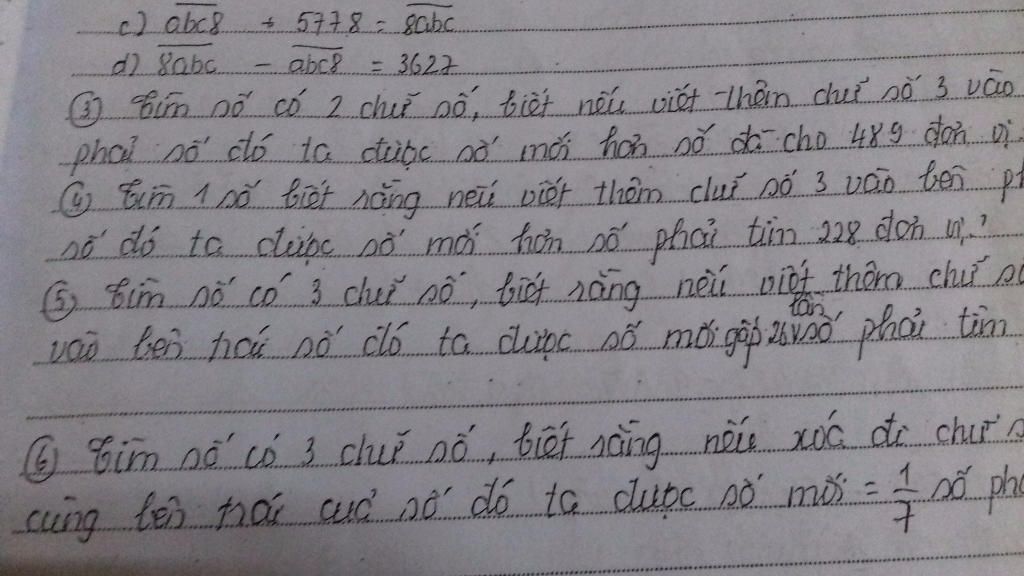 c) abc8 + 5778 = 8abc
d) 8abc - abc8 = 3627
③ Tìm số có 2 chữ số, biết nếu viết thêm chữ số 3 vào
phải số đó ta được số mới hơn số đã cho 489 đơn vị.
④ Tìm 1 số biết rằng nếu viết thêm chữ số 3 vào bên
số đó ta được số mới hơn số phải tìm 228 đơn vị.?
⑤ Tìm số có 3 chữ số, biết rằng nếu viết thêm chữ
vào bên trái số đó ta được số mới gấp 26 lần số phải tìm
⑥ Tìm số có 3 chữ số, biết rằng nếu xoá đi chữ
cùng bên trái của số đó ta được số mới = 1/7 số